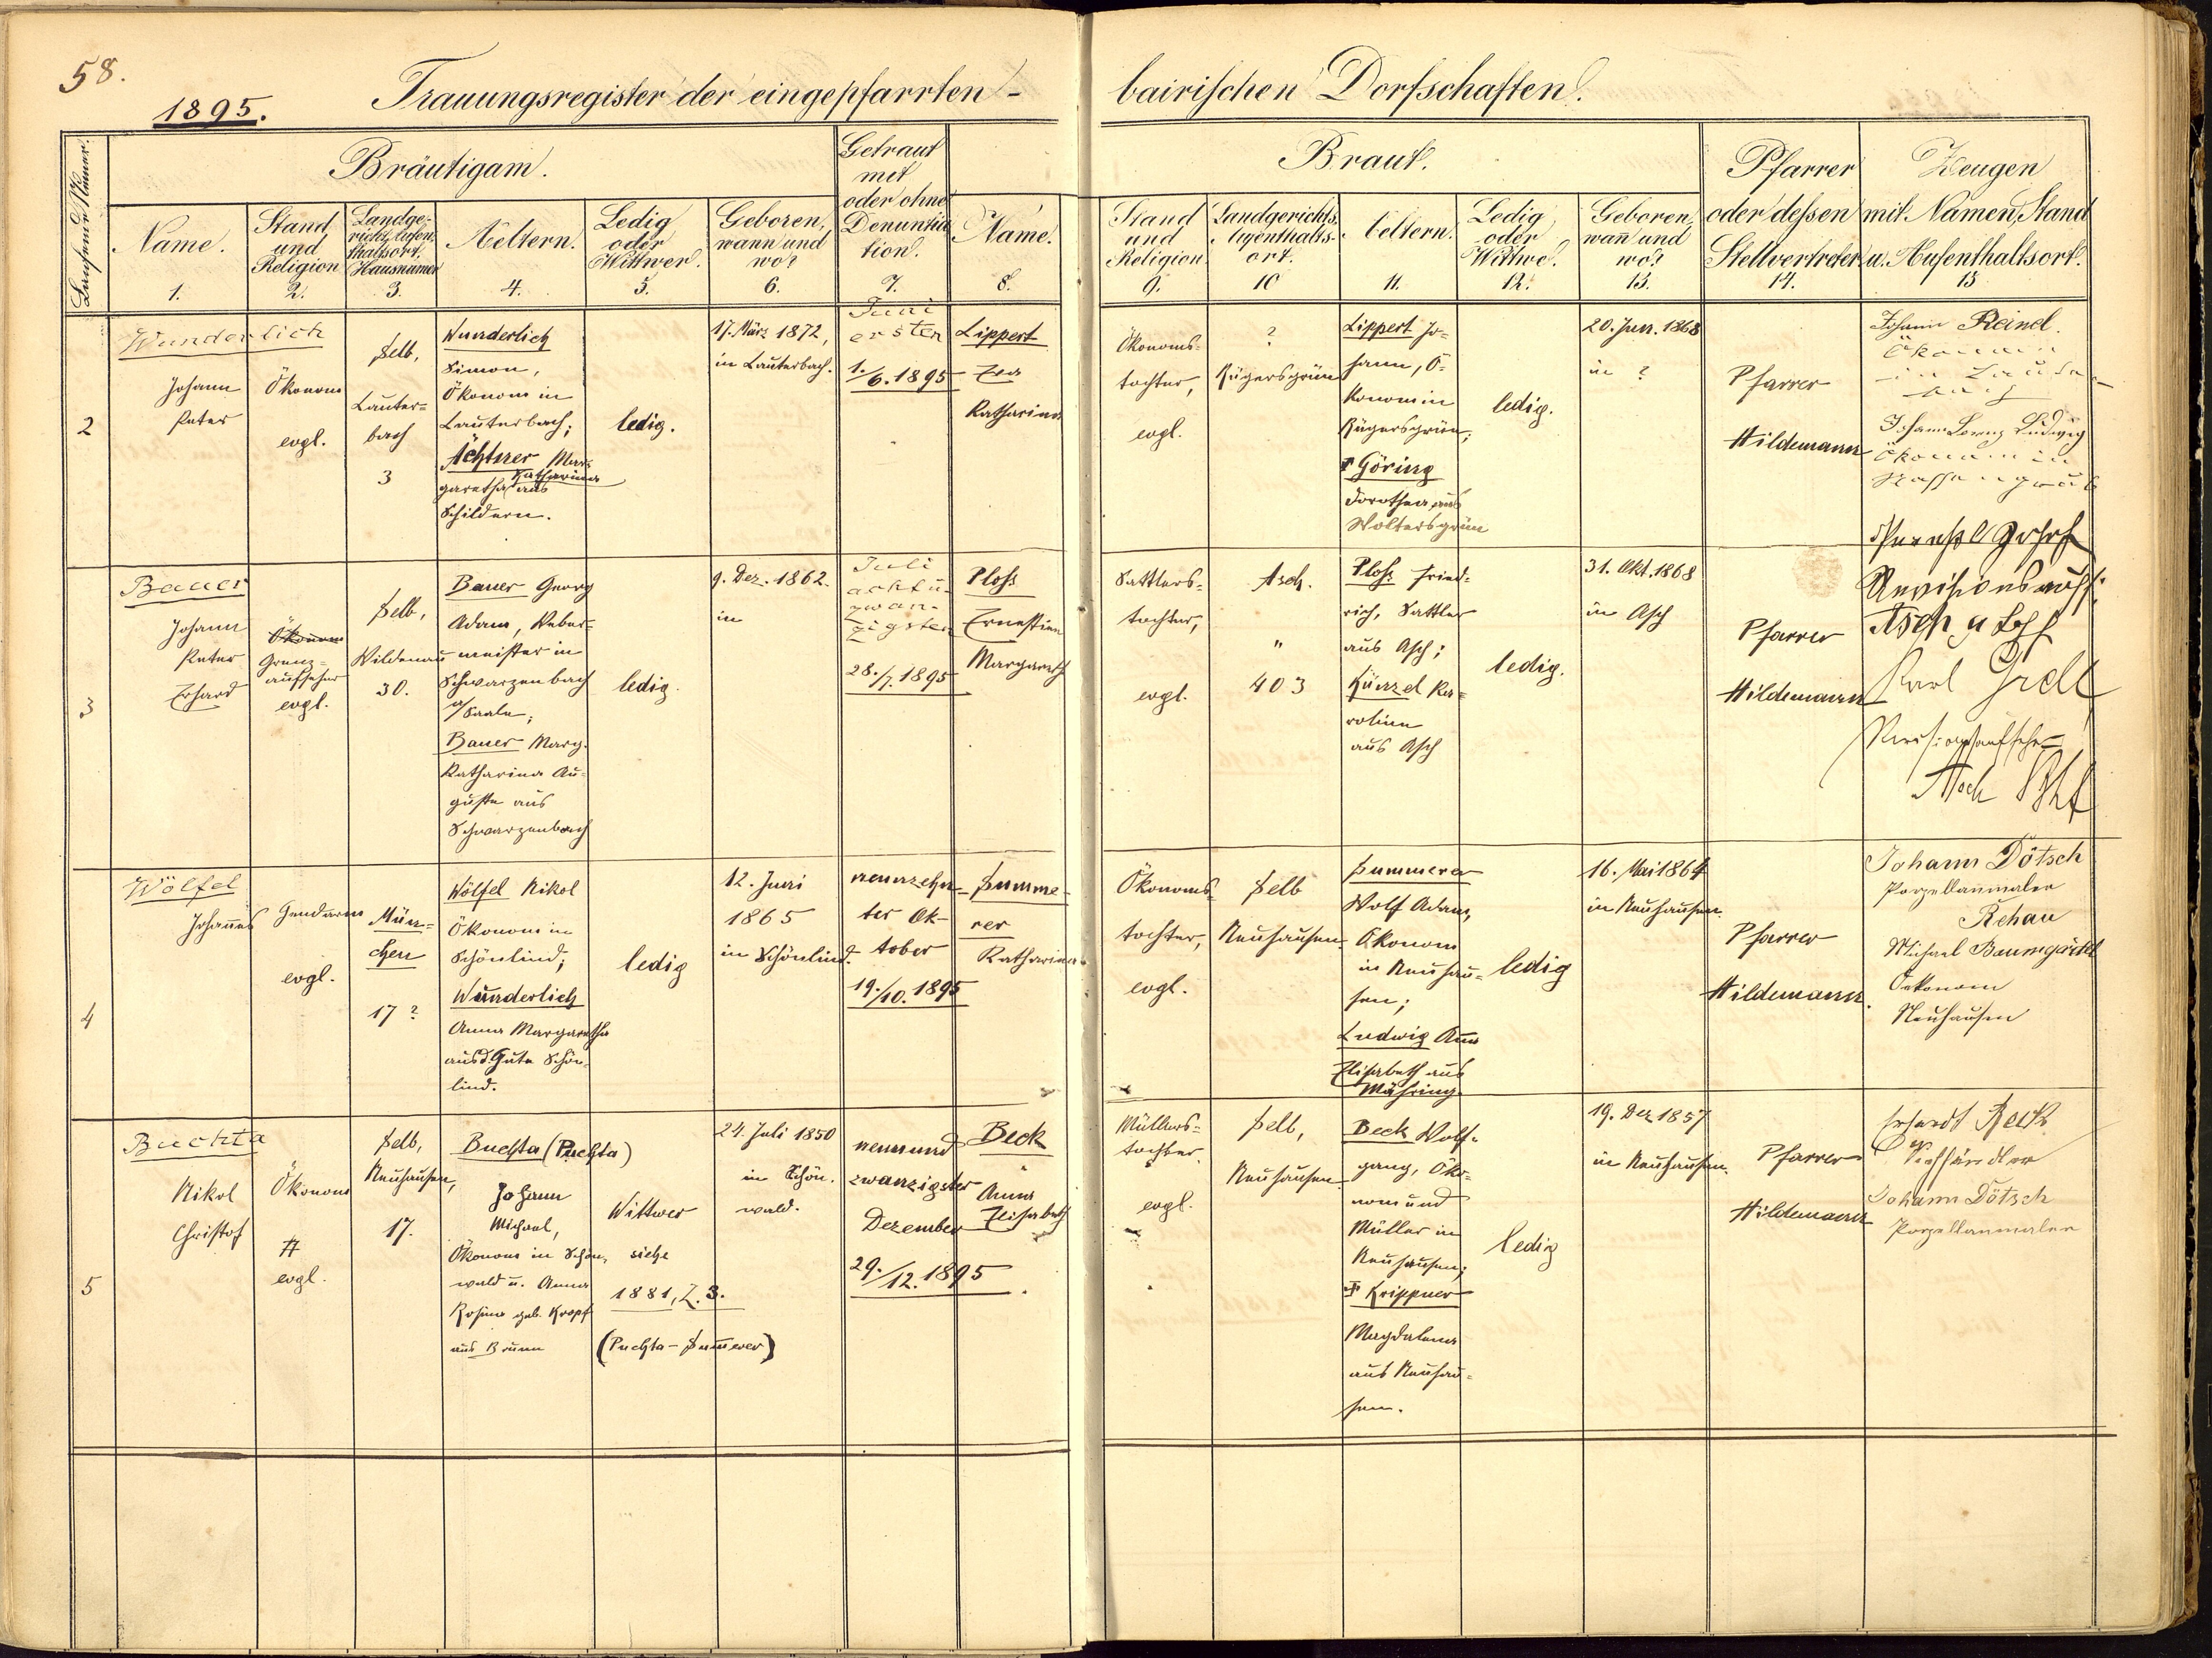 58.
1895.
Trauungsregister der eingepfarrten-
bairischen Dorfschaften.
Laufende Nummer.
Bräutigam.
Getraut
mit
oder ohne
Denuntia
tion.
Braut.
Pfarrer
oder dessen
Stellvertreter
Zeugen
mit Namen, Stand
u. Aufenthaltsort.
Name.
Stand
und
Religion
Landge-
richt, Aufent-
haltsort.
Hausnamen
Aeltern.
Ledig
oder
Wittwer.
Geboren,
wann und
wo?
Name.
Stand
und
Religion
Landgerichts,
Aufenthalts-
ort.
Aeltern.
Ledig
oder
Wittwe.
Geboren,
wañ und
wo?
1.
2.
3.
4.
5.
6.
7.
8.
9.
10
11.
12.
13.
14.
15
2
Wunderlich
Johann
Peter
Ökonom
evgl.
Selb,
Lauter-
bach
3
Wunderlich
Simon,
Ökonom in
Lauterbach;
Ächtner Mar-
garetha Katharina
aus
Schildern.
ledig.
17. März 1872,
in Lauterbach.
Juni
ersten
1./6. 1895
Lippert
Eva
Katharina
Ökonoms-
tochter,
evgl.
?
Rügersgrün
Lippert Jo-
hann, Ö-
konom in
Rügersgrün;
Göring
Dorothea aus
Woltersgrün
ledig.
20. Jun. 1868
in ?
Pfarrer
Hildemann
Johann Reinel.
Ökonom
in Lauter-
bach
Johann Lorenz Ludwig
Ökonom in
Nassengrub
3
Bauer
Johann
Peter
Erhard
Ökonom
Grenz-
aufseher
evgl.
Selb,
Wildenau
30.
Bauer Georg
Adam, Weber-
meister in
Schwarzenbach
a/Saale;
Bauer Marg.
Katharina Au-
guste aus
Schwarzenbach
ledig.
9. Dez. 1862.
in
Juli
acht u.
zwan-
zigsten
28./7. 1895
Ploß
Ernestine
Margareth
Sattlers-
tochter,
evgl.
Asch.
"
403
Ploß Fried-
rich, Sattler
aus Asch;
Künzel Ka-
roline
aus Asch
ledig.
31. Okt. 1868
in Asch
Pfarrer
Hildemann
Revisionsaufs.
Asch
Karl
Revisionsaufseher
Asch Bhf
4
Wölfel
Johañes
Gendarm
evgl.
Mün-
chen
17 ?
Wölfel Nikol
Ökonom in
Schönlind;
Wunderlich
Anna Margaretha
aus d. Gute Schön-
lind.
ledig
12. Juni
1865
in Schönlind.
neunzehn-
ter Ok-
tober
19./10. 1895
Summe-
rer
Katharina
Ökonoms-
tochter,
evgl.
Selb
Neuhausen
Summerer
Wolf Adam,
Ökonom
in Neuhau-
sen;
Ludwig Aña
Elisabeth aus
Mähring.
ledig
16. Mai 1864
in Neuhausen.
Pfarrer
Hildemann.
Johann Dötsch
Porzellanmaler
Rehau
Michael Baumgärtel
Oekonom
Neuhausen
5
Buchta
Nikol
Christof
Ökonom
evgl.
Selb,
Neuhausen,
17.
Buchta (Puchta)
Johann
Michael,
Ökonom in Schön-
wald u. Anna
Rosina geb. Kropf
aus Brunn
Wittwer
siehe
1881, Z. 3.
(Puchta-Sum̄erer)
24. Juli 1850
in Schön-
wald.
neunund
zwanzigster
Dezember
29./12. 1895.
Beck
Anna
Elisabeth
Müllers-
tochter.
evgl.
Selb,
Neuhausen.
Beck Wolf-
gang, Öko-
nom und
Müller in
Neuhausen;
Krippner
Magdalena
aus Neuhau-
sen.
ledig
19. Dez. 1857
in Neuhausen.
Pfarrer
Hildemann
Erhardt Beck
Viehhändler
Johann Dötsch
Porzellanmaler